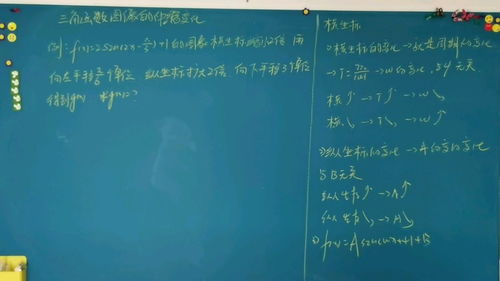 三角函数图像的伸缩变化
例: f(x)=2sin(2x-π/3)+1的图象 横坐标 2倍 再
向左平移 个单位 纵坐标扩大2倍 向下平移3个单位
得到g(x) 求g(x)=?
横坐标
①横坐标的变化→就是周期的变化
→T=2π/|ω|→ω的变化,与φ无关
横↑→T↑→ω↓
横↓→T↓→ω↑
②纵坐标的变化→A的变化
与B无关
纵坐标↑→A↑
纵坐标↓→A↓
f(x)=Asin(ωx+φ)+B